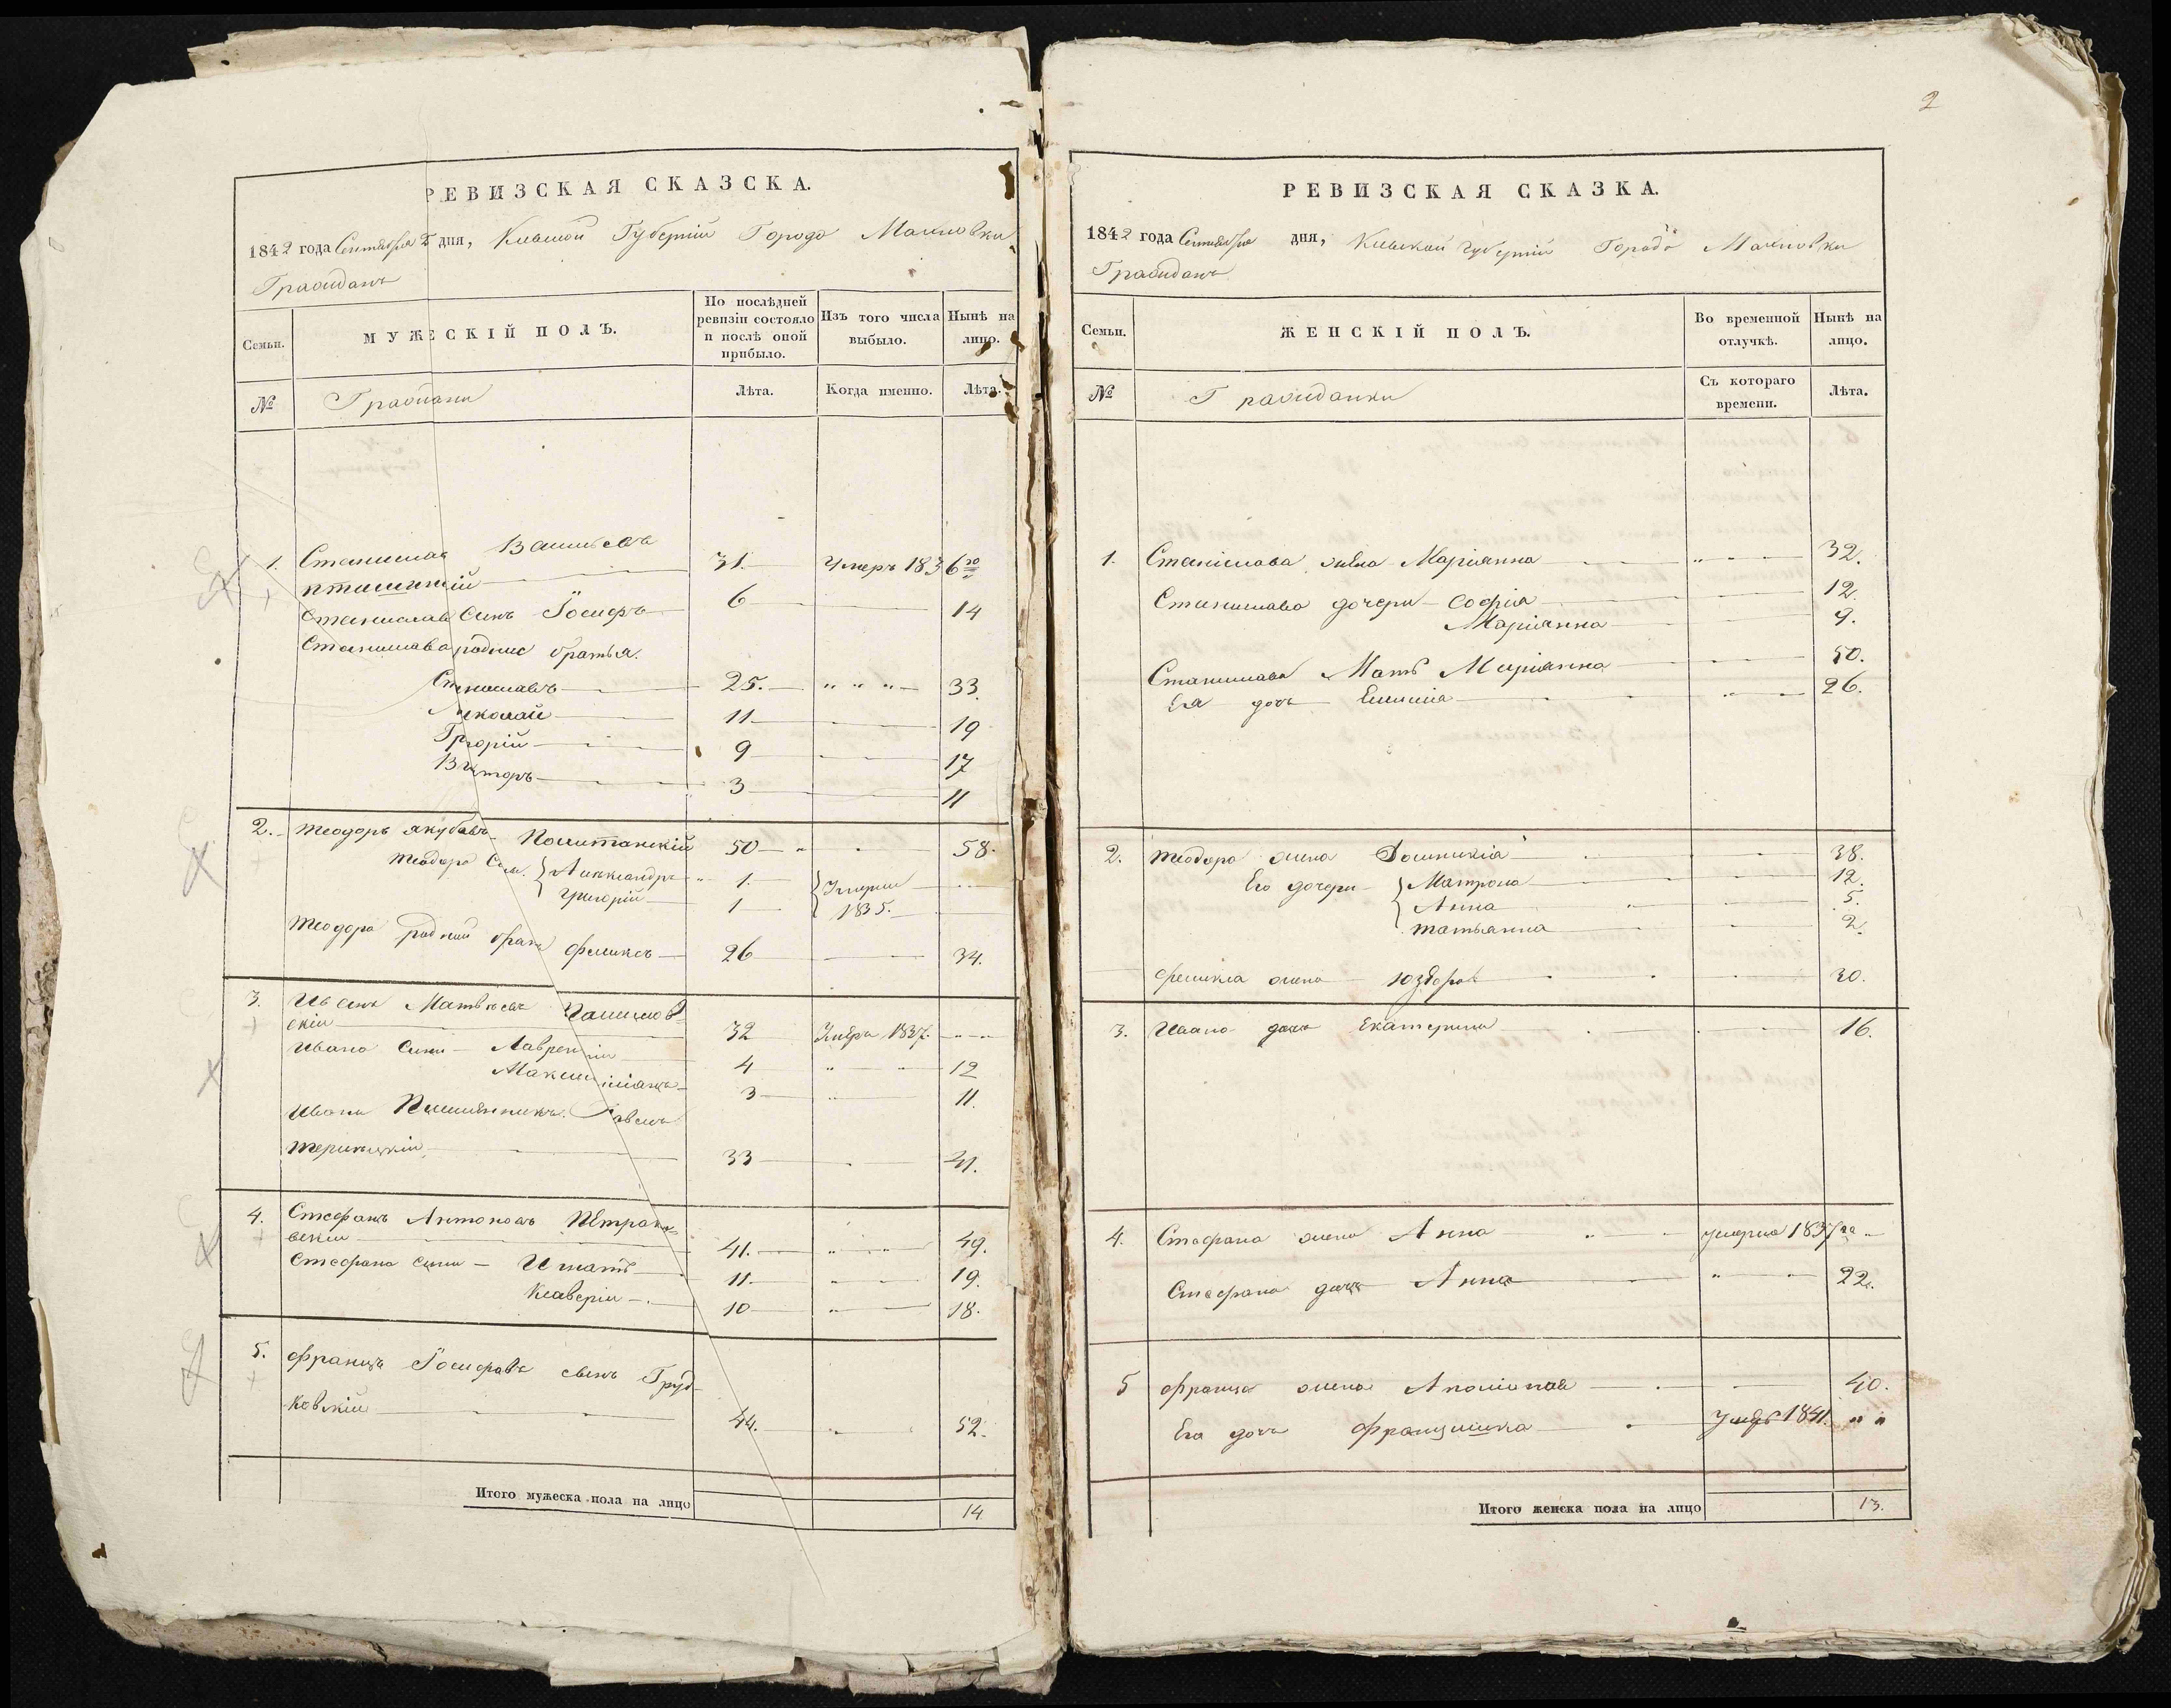 РЕВИЗСКАЯ СКАЗСКА.
1842 года Сентября 2 дня, Кіевской Губерніи Города Махновки
Гражданъ
Семьи.
МУЖЕСКІЙ ПОЛЪ.
По послѣдней ревизіи состояло и послѣ оной прибыло.
Изъ того числа выбыло.
Нынѣ на лицо.
№
Граждани
Лѣта.
Когда именно.
Лѣта.
1. Станислав
31. Умеръ 1836го
Станислава Синъ Іосифъ 6 14
Станислава родние братья.
Станиславъ 25. 33.
Николай 11 19
Григорій 9 17
Викторъ 3 11
2. Теодоръ Якубовъ 50 58.
Теодора Сын. Александръ 1. Умерли
Григорій 1 1835.
Теодора родний братъ Феликсъ 26 34.
3. Иванъ Матвѣевъ
скій 32 Умеръ 1837.
Ивана Сини Лаврентій 4 12
Максимиліанъ 3 11.
Ивана Племянникъ Павелъ
33 41.
4. Стефанъ Антоновъ Петрано
вскій 41. 49.
Стефана сини Игнатъ 11 19.
Ксаверій 10 18.
5. Францъ Іосифовъ сынъ Груд
ковскій 44. 52.
Итого мужеска пола на лицо 14
2
РЕВИЗСКАЯ СКАЗКА.
1842 года Сентября дня, Кіевской Губерніи Города Махновки
Гражданъ
Семьи.
ЖЕНСКІЙ ПОЛЪ.
Во временной отлучкѣ.
Нынѣ на лицо.
№
Гражданки
Съ котораго времени.
Лѣта.
1. Станіслава жена Маріянна 32.
Станислава дочери Софія 12.
Маріянна 9.
Станислава Мать Маріянна 50.
Ея дочь 26.
2. Теодора жена Домникія 38.
Его дочери Матрона 12.
Анна 5.
Татьянна 2.
Феликса жена 30.
3. Ивана дочь Екатерина 16.
4. Стефана жена Анна умерла 1837го
Стефана дочь Анна 22.
5 Франца жена Аполонія 40.
Его дочь Францишка 1841.
Итого женска пола на лицо 13.